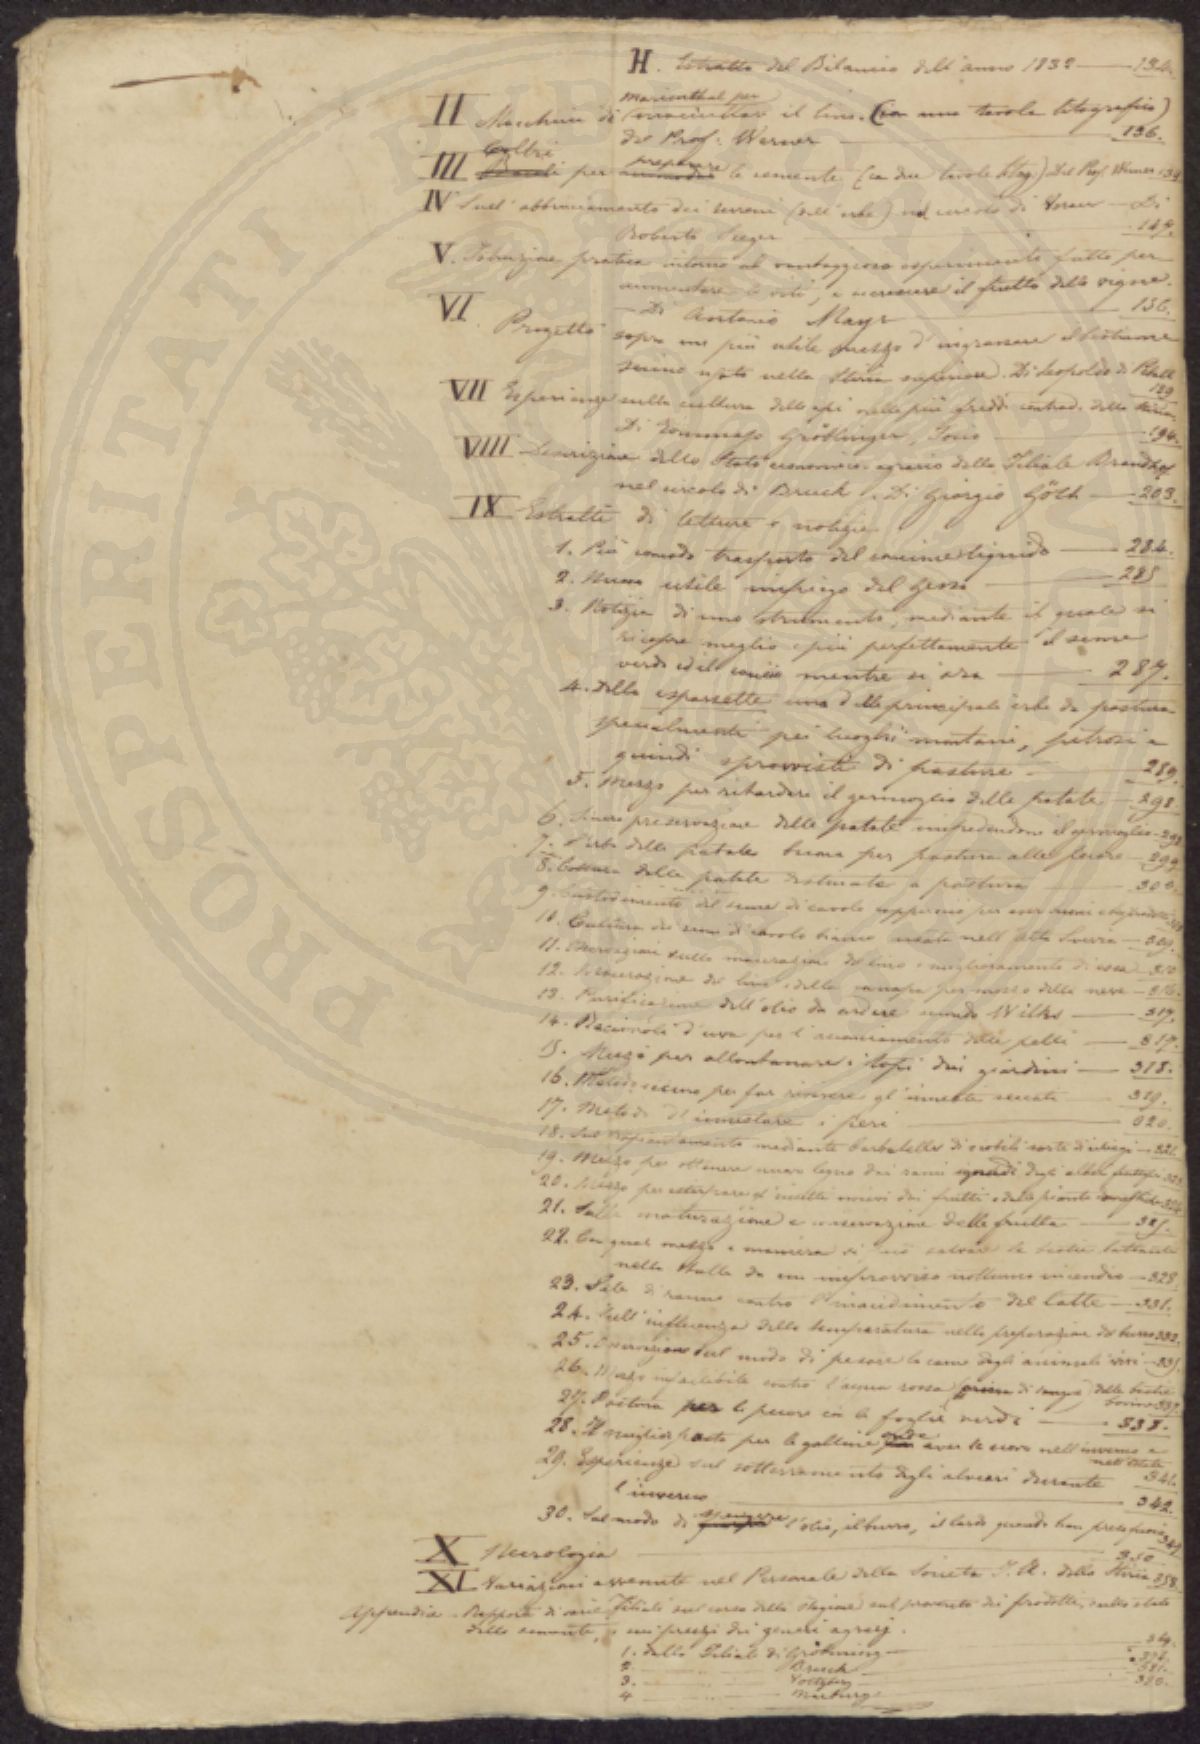 H. Estratto del Bilancio dell'anno 1832 134.
Marienthal per
II Macchina di il lino. (con una tavola litografica)
del Prof. Werner 136.
Coltri
preparare
III per le semente (con due tavole litog.) Del Prof. Werner 139
IV Sull'abbruciamento dei terreni (dell'erbe) nel circolo di Di
Roberto 147.
V. Istruzione pratica intorno al vantaggioso esperimento fatto per
aumentare le viti, e accrescere il frutto delle vigne.
Di Antonio Mayr 156.
VI Progetto sopra un più utile mezzo d'ingrassare il bestiame
usato nella Stiria superiore. Di Leopoldo di
189
VII Esperienze sulla cultura delle api nelle più fredde contrade della Stiria.
Di Tommaso Gröblinger, Socio 194.
VIII Descrizione dello Stato economico-agrario della Filiale Brandhof
nel circolo di Bruck. Di Giorgio Göth 203.
IX Estratti di letture e notizie
1. Più comodo trasporto del concime liquido 284.
2. Nuovo utile impiego del Gesso 285
3. Notizia di uno strumento, mediante il quale si
ricopre meglio e più perfettamente il seme
verde ed il concio mentre si ara 287.
4. Della esparsette una delle principali erbe da pastura
specialmente pei luoghi montani, petrosi e
quindi sprovvisti di pasture 289.
5. Mezzo per ritardare il germoglio delle patate 298.
6. Sicura preservazione delle patate impedendone il germoglio 298
7. L'erba delle patate buona per pastura alle pecore 299
8. Cottura delle patate destinate a pastura 300.
9. Custodimento del seme di cavolo cappuccio per aver
10. Cultura del seme di cavolo bianco usata nell'alta Svezia 309.
11. Osservazioni sulla macerazione del lino e miglioramento di essa 310
12. Macerazione del lino e della canapa per mezzo della neve 316.
13. Purificazione dell'olio da ardere secondo Wilks 317.
14. d'uva per l'acconciamento delle pelli 317.
15. Mezzo per allontanare i topi dai giardini 318.
16. Metodo sicuro per far rinvenire gl'innesti seccati 319.
17. Metodo d'innestare i peri 320.
18. Sul mediante barbatelle di nobili sorte di 321.
19. Mezzo per ottenere nuovo legno dai rami ignudi degli alberi fruttiferi 323
20. Mezzo per estirpare gl'insetti nocivi dai frutti e dalle piante 324
21. Sulla maturazione e conservazione delle frutta 325.
22. Con qual mezzo e maniera si può salvare le bestie
nella stalla da un improvviso notturno incendio 328.
23. Sale di ranno contro l'inacidimento del latte 331.
24. Dell'influenza della temperatura nella preparazione del burro 332.
25. Osservazioni sul modo di pesare la carne degli animali vivi 335.
26. Mezzo infallibile contro l'acqua rossa (piscia di sangue) delle bestie
bovine 337.
27. Pastura per le pecore con le foglie verdi 338.
28. Il miglior pasto per le galline onde aver le uova nell'inverno e
nell'estate 341.
29. Esperienze sul sotterramento degli alveari durante
l'inverno 342.
30. Sul modo di l'olio, il burro, il lardo quando han preso fuoco 349
X Necrologia 350
XI Variazioni avvenute nel Personale della Società I. R. della Stiria 358.
Appendice. Rapporti di varie Filiali sul corso della stagione sul provento dei prodotti, sullo stato
delle semente, e sui prezzi dei generi agrarj.
1. dalla Filiale di Gröbming 369.
2. Bruck
3. Voitsberg
4 Marburg 380.